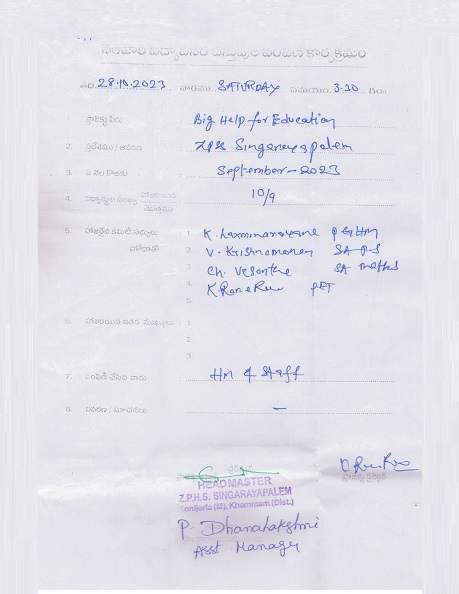 నెలవారీ విద్యావసర వస్తువుల పంపిణీ కార్యక్రమం
తేది. 28.10.2023 వారము. SATURDAY సమయం. 3.30 గం॥
1. ప్రాజెక్టు పేరు Big Help for Education
2. ప్రదేశము / ఆవరణ ZPSS Singarayapalem
3. ఏ నెల కొరకు September - 2023
4. విద్యార్థుల సంఖ్య హాజరయినది 10/9
మొత్తము
5. హాజరైన కమిటీ సభ్యులు 1. K. Laxminarayana PGHM
హోదాతో 2. V. Krishnamoney SA P.S
3. Ch. Vesantha SA maths
4. PET
5.
6. హాజరయిన ఇతర ముఖ్యులు : 1.
2.
3.
7. పంపిణీ చేసిన వారు HM & Staff
8. వివరణ / సూచనలు —
HEADMASTER
Z.P.H.S. SINGARAYAPALEM
Konijerla (M), Khammam (Dist.)
P. Dhanalakshmi
Asst Manager